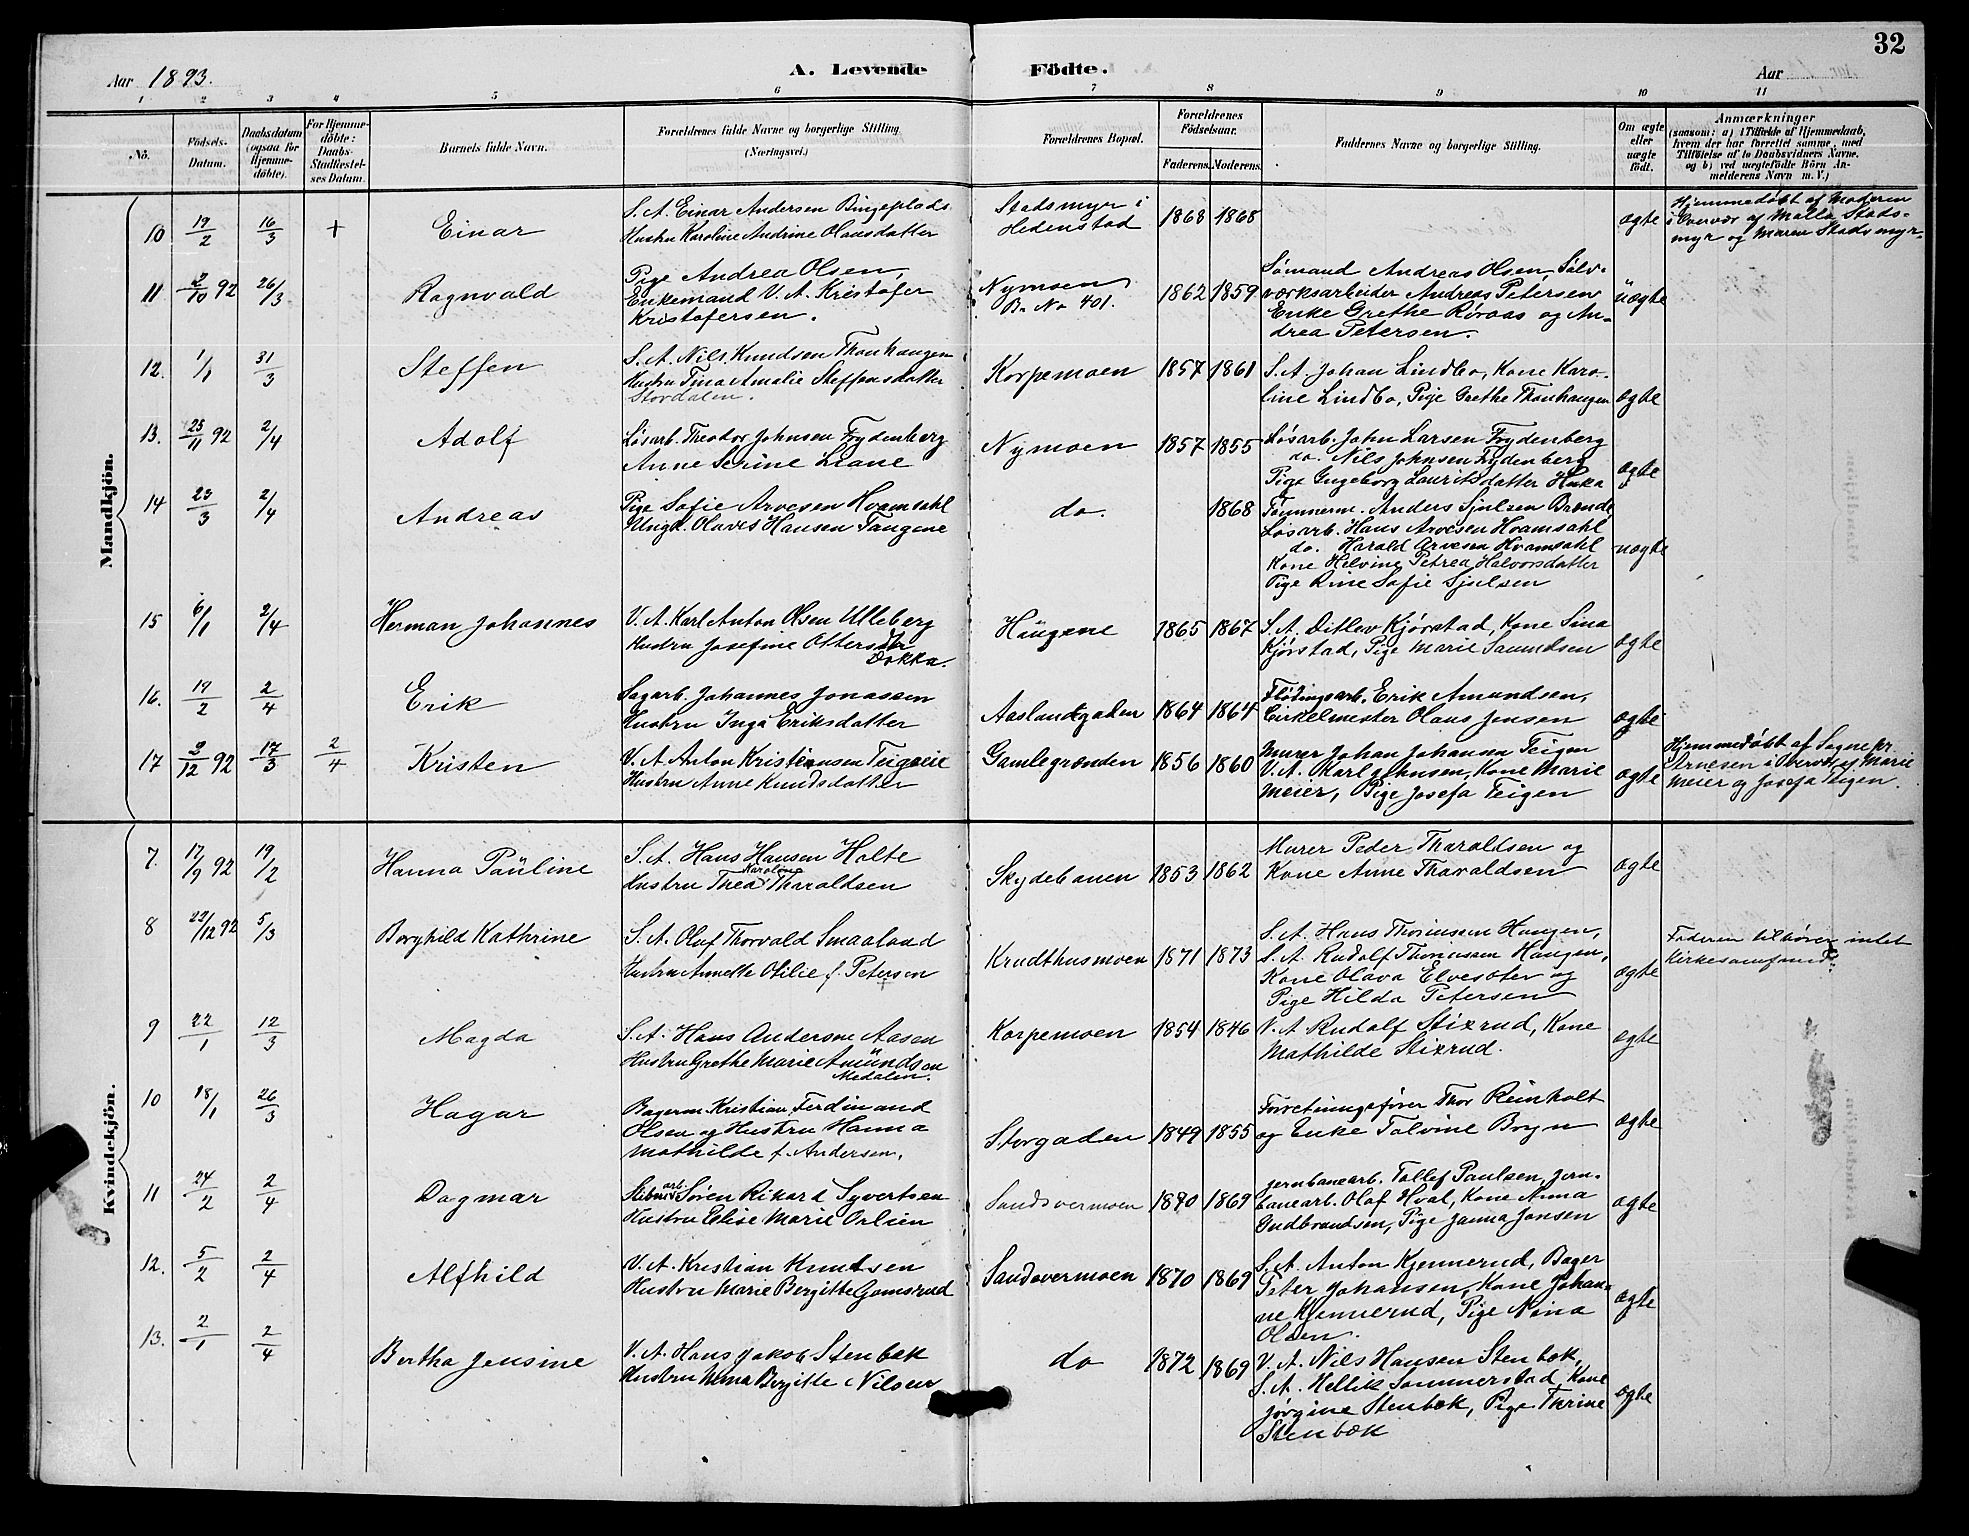 32
Aar 1893.
A. Levende Födte.
Aar
1 2 3 4 5 6 7 8 9 10 11
No.
Födsels-Datum.
Daabsdatum (ogsaa for Hjemme-döbte).
For Hjemme-döbte: Daabs-Stadfæstel-ses Datum.
Barnets fulde Navn.
Forældrenes fulde Navne og borgerlige Stilling
(Næringsvei.)
Forældrenes Bopæl.
Forældrenes Födselsaar.
Faderens. Moderens.
Faddernes Navne og borgerlige Stilling.
Om ægte eller uægte födt.
Anmærkninger
(saasom: a) i Tilfælde af Hjemmedaab,
hvem der har forrettet samme, med
Tilföielse af to Daabsvidners Navne,
og b) ved uægtefödte Börn An-
melderens Navn m. V.)
Mandkjön.
10 19/2 16/3 + Einar
S. A. Einar Andersen Bingeplads
Hustru Karoline Andrine Olausdatter
Stadsmyr i
Hedenstad
1868 1868
ægte
Hjemmedøbt af Moderen
i Overvær af Malla Stads-
myr og Maren Stadsmyr.
11 2/10 92 26/3 Ragnvald
Pige Andrea Olsen,
Enkemand V. A. Kristofer
Kristofersen.
Nymoen
B. No 401.
1862 1859
Sømand Andreas Olsen, Sølv-
værksarbeider Andreas Petersen
Enke Grethe Røraas og An-
drea Petersen.
uægte
12. 1/1 31/3 Steffen
S. A. Nils Knudsen Thonhaugen
Hustru Tina Amalie Steffensdatter
Stordalen.
Korpemoen
1857 1861
S. A. Johan Lindbo, Kone Karo-
line Lindbo, Pige Grethe Thonhaugen
ægte
13. 23/11 92 2/4 Adolf
Løsarb. Theodor Johnsen Frydenberg
Anne Serine Liane
Nymoen
1857 1855
Løsarb. John Larsen Frydenberg
do. Nils Johnsen Frydenberg
Pige Ingeborg Lauritsdatter
ægte
14 23/3 2/4 Andreas
Pige Sofie Arvesen Hvamsahl
Ungk. Olaves Hansen Tangene
do.
1868
Tømmerm. Anders Sjulsen
Løsarb. Hans Arvesen Hvamsahl
do. Harald Arvesen Hvamsahl
Kone Helvine Petrea Halvorsdatter
Pige Rine Sofie Sjulsen
uægte
15 6/1 2/4 Herman Johannes
V. A. Karl Anton Olsen Ulleberg
Hustru Josefine Ottersdtr
Dokka.
Haugene
1865 1867
S. A. Ditlev Kjørstad, Kone Sina
Kjørstad, Pige Marie Samuelsen
ægte
16. 19/2 2/4 Erik
Sagarb. Johannes Jonassen
Hustru Inga Eriksdatter
Aaslandgaden
1864 1864
Flødingsarb. Erik Amundsen,
Cirkelmester Olaus Jensen
ægte
17 2/12 92 17/3 2/4 Kristen
V. A. Anton Kristiansen Teigeie
Hustru Anne Knudsdatter
Gamlegrænden
1856 1860
Murer Johan Johannesen Teigen
V. A. Karl Johnsen, Kone Marie
Meier, Pige Josefa Teigen
ægte
Hjemmedøbt af Sognepr.
Arnesen i Overvær af Marie
Meier og Josefa Teigen.
Kvindekjön.
7. 17/9 92 19/2 Hanna Pauline
S. A. Hans Hansen Holte
Karoline
Hustru Thea Tharaldsen
Skydebanen
1853 1862
Murer Peder Tharaldsen og
Kone Anne Tharaldsen
ægte
8 29/12 92 5/3 Borghild Kathrine
S. A. Olaf Thorvald Smaaland
Hustru Annette Otilie f. Petersen
Krudthusmoen
1871 1873
S. A. Hans Thomassen Haugen,
S. A. Rudolf Thomassen Haugen,
Kone Olava Elvesæter og
Pige Hilda Petersen
ægte
Faderen tilhører intet
Kirkesamfund.
9 22/1 12/3 Magda
S. A. Hans Andersen Aasen
Hustru Grethe Marie Amundsen
Medalen.
Korpemoen
1854 1846
V. A. Rudolf Stixrud, Kone
Mathilde Stixrud.
ægte
10 18/1 26/3 Hagar
Bagerm. Kristian Ferdinand
Olsen og Hustru Hanna
Mathilde f. Andersen.
Storgaden
1849 1855
Forretningsfører Thor Reinholt
og Enke Tolvine Bryn
ægte
11 24/2 2/4 Dagmar
arb. Søren Rikard Syvertsen
Hustru Elise Marie Orlien
Sandsvermoen
1870 1869
Jernbanearb. Tollef Paulsen, Jern-
banearb. Olaf Hval, Kone Anna
Gudbrandsen, Pige Janna Jonsen
ægte
12. 5/2 2/4 Alfhild
V. A. Kristian Knudsen
Hustru Marie Bergitte Gamsrud
Sandsvermoen
1870 1869
S. A. Anton Kjennerud, Bager
Peter Johansen, Kone Johan-
ne Kjennerud, Pige Nina
Olsen.
ægte
13. 2/1 2/4 Bertha Jensine
V. A. Hans Jakob Stenbæk
Hustru Anna Bergitte Nilsen
do
1872 1869
V. A. Nils Hansen Stenbæk,
S. A. Hellik Sommerstad, Kone
Jørgine Stenbæk, Pige Thrine
Stenbæk
ægte